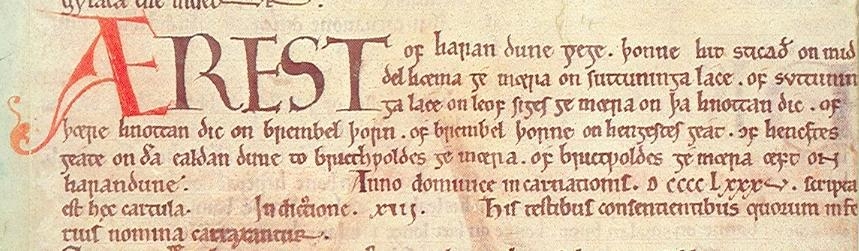 ÆREST of haran dune gege. þonne hit sticað on mid
del hæma ge mæra on suttuninga lace. of suttunin
ga lace on leof siges ge mæra on þa knottan dic. of
þære knottan dic on brembel þorn. of brembel þorne on hengestes geat. of hencstes
geate on ða ealdan dune to ge mæra. of ge mæra æft on
harandune. Anno dominice incarnationis. D cccc Lxxxv. scripta
est hec cartula. Indictione. xiii. His testibus consentientibus quorum infe
rius nomina caraxantur.